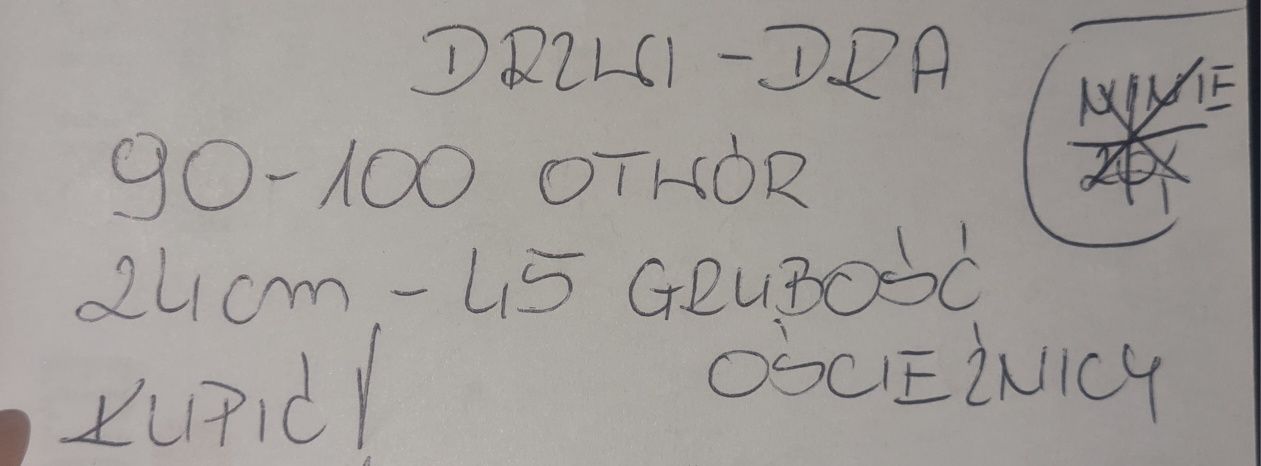 DRZWI - DRA
90-100 OTWÓR
24cm - 45 GRUBOŚĆ
OŚCIEŻNICY
KUPIĆ!